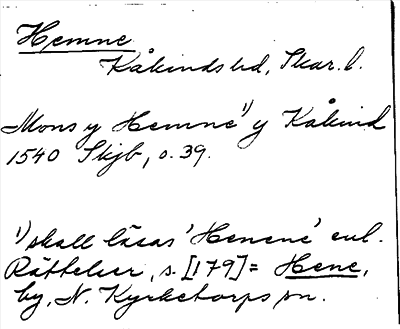 Hemne
Kåkinds hd, Skar. l.
Mons y Hemne¹⁾ y Kåkind
1540 Skjb, s. 39.
¹⁾ skall läsas 'Henene' enl.
Rättelser, s. [179] = Hene,
by, N. Kyrketorps sn.